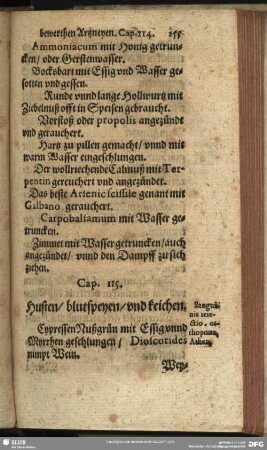 bewerthen Artzneyen. Cap. 114. 255
Ammoniacum mit Honig getrun-
cken/ oder Gerstenwasser.
Bocksbart mit Essig vnd Wasser ge-
sotten vnd gessen.
Runde vnnd lange Hollwurtz mit
Ziebelnuß offt in Speisen gebraucht.
Vorstoß oder propolis angezündt
vnd gerauchert.
Hartz zu pillen gemacht/ vnnd mit
warm Wasser eingeschlungen.
Der wollriechende Calmuß mit Ter-
pentin gereuchert vnd angezündet.
Das beste Arsenic scissile genant mit
Galbano gerauchert.
Carpobalsamum mit Wasser ge-
truncken.
Zimmet mit Wasser getruncken/ auch
angezündet/ vnnd den Dampff zu sich
ziehen.
Cap. 115.
Husten/ blutspeyen/ vnd keichen.
Sangui-
nis reie-
ctio. or-
thopnœa
Asthma
Cypressen Nußgrün mit Essig vnnd
Myrrhen geschlungen/ Dioscorides
nimpt Wein.
Wey-
SLUB
DFG